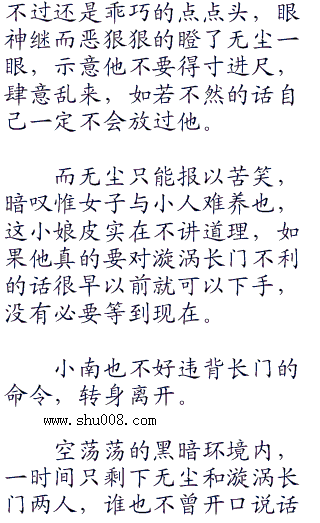 不过还是乖巧的点点头，眼
神继而恶狠狠的瞪了无尘一
眼，示意他不要得寸进尺，
肆意乱来，如若不然的话自
己一定不会放过他。
而无尘只能报以苦笑，
暗叹惟女子与小人难养也，
这小娘皮实在不讲道理，如
果他真的要对漩涡长门不利
的话很早以前就可以下手，
没有必要等到现在。
小南也不好违背长门的
命令，转身离开。
www.shu008.com
空荡荡的黑暗环境内，
一时间只剩下无尘和漩涡长
门两人，谁也不曾开口说话